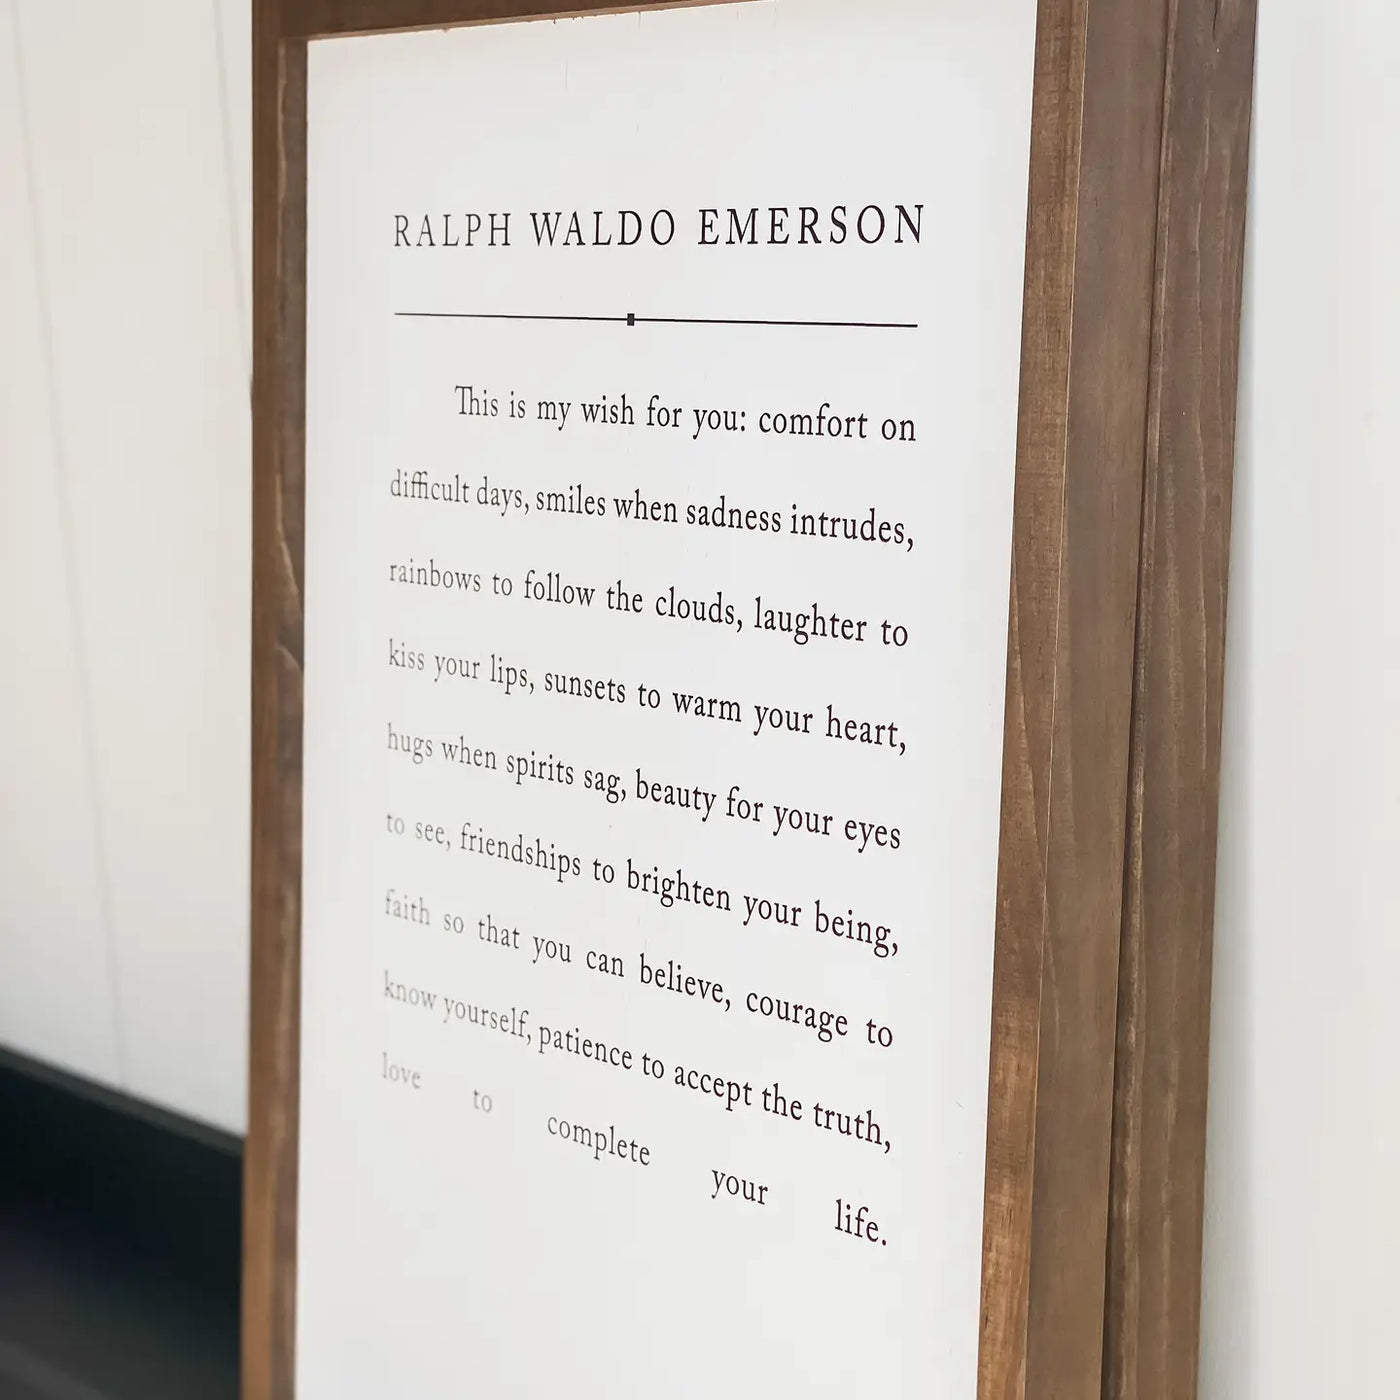 RALPH WALDO EMERSON
This is my wish for you: comfort on
difficult days, smiles when sadness intrudes,
rainbows to follow the clouds, laughter to
kiss your lips, sunsets to warm your heart,
hugs when spirits sag, beauty for your eyes
to see, friendships to brighten your being,
faith so that you can believe, courage to
know yourself, patience to accept the truth,
love to complete your life.